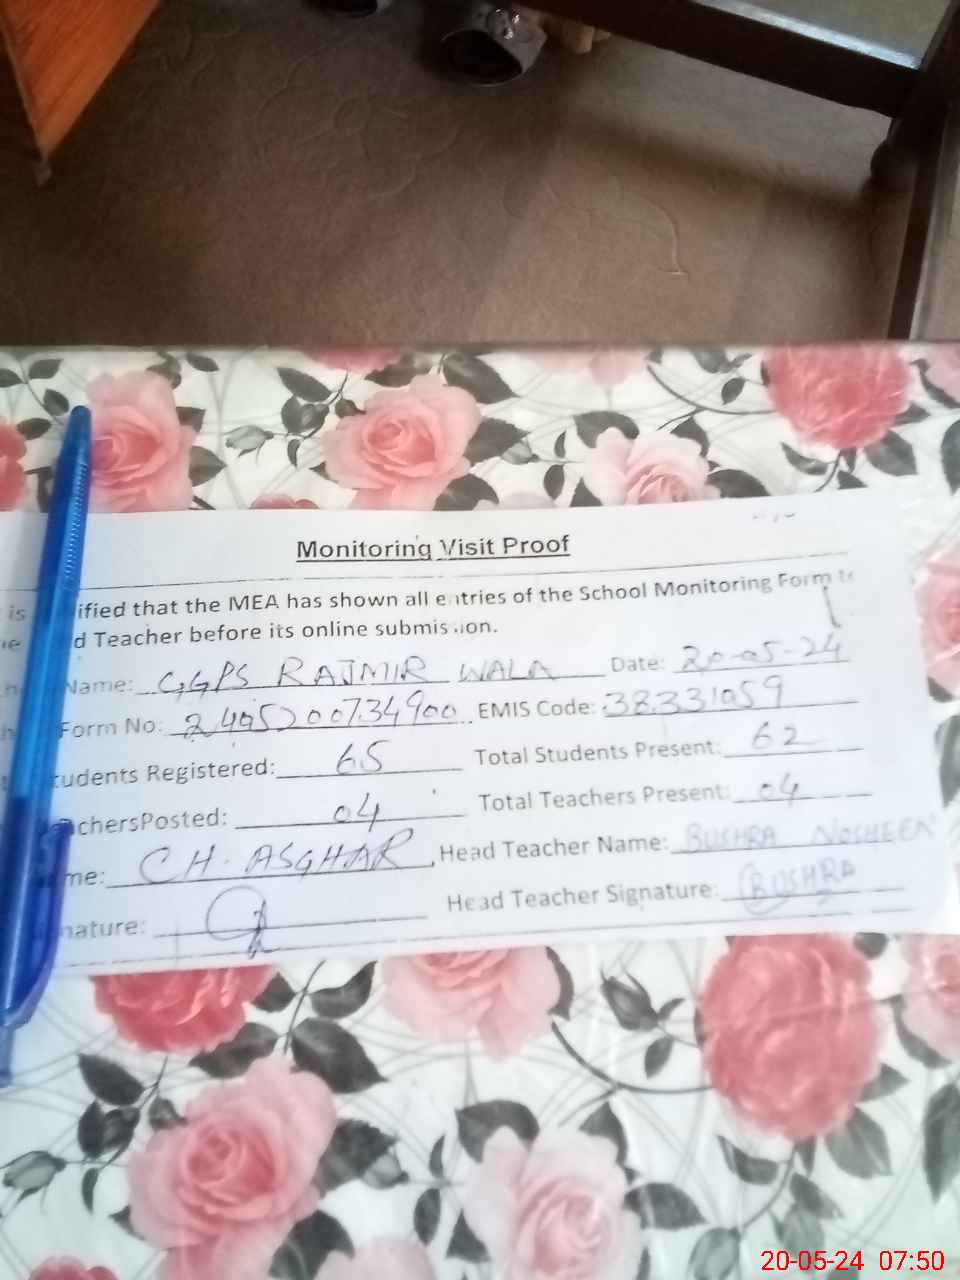 Monitoring Visit Proof
is ified that the MEA has shown all entries of the School Monitoring Form to
d Teacher before its online submission.
Name: GGPS RAJMIR WALA Date: 20-05-24
Form No: 2405200734900 EMIS Code: 38331059
tudents Registered: 65 Total Students Present: 62
achersPosted: 04 Total Teachers Present: 04
me: CH. ASGHAR Head Teacher Name: BUSHRA NOSHEEN
nature: Head Teacher Signature: BUSHRA
20-05-24 07:50